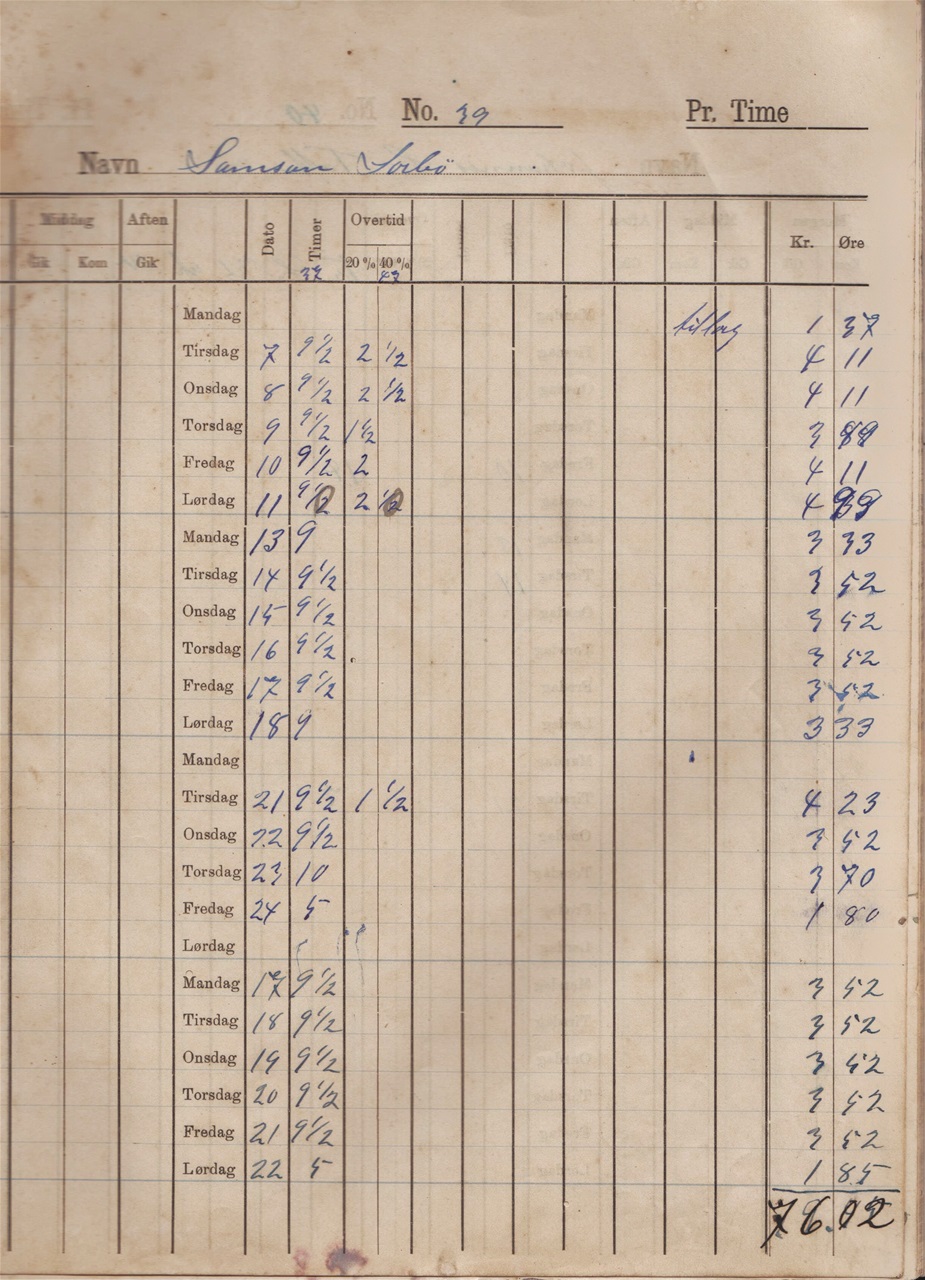 No. 39 Pr. Time
Navn Samson Sorbö
Middag Aften Dato Timer Overtid Kr. Øre
Gik Kom Gik 37 20 % 40 % 43
Mandag tillag 1 37
Tirsdag 7 9 1/2 2 1/2 4 11
Onsdag 8 9 1/2 2 1/2 4 11
Torsdag 9 9 1/2 1 1/2 3
Fredag 10 9 1/2 2 4 11
Lørdag 11 9 1/2 2 1/2 4
Mandag 13 9 3 33
Tirsdag 14 9 1/2 3 52
Onsdag 15 9 1/2 3 52
Torsdag 16 9 1/2 3 52
Fredag 17 9 1/2 3 52
Lørdag 18 9 3 33
Mandag
Tirsdag 21 9 1/2 1 1/2 4 23
Onsdag 22 9 1/2 3 52
Torsdag 23 10 3 70
Fredag 24 5 1 80
Lørdag
Mandag 17 9 1/2 3 52
Tirsdag 18 9 1/2 3 52
Onsdag 19 9 1/2 3 52
Torsdag 20 9 1/2 3 52
Fredag 21 9 1/2 3 52
Lørdag 22 5 1 85
76.02